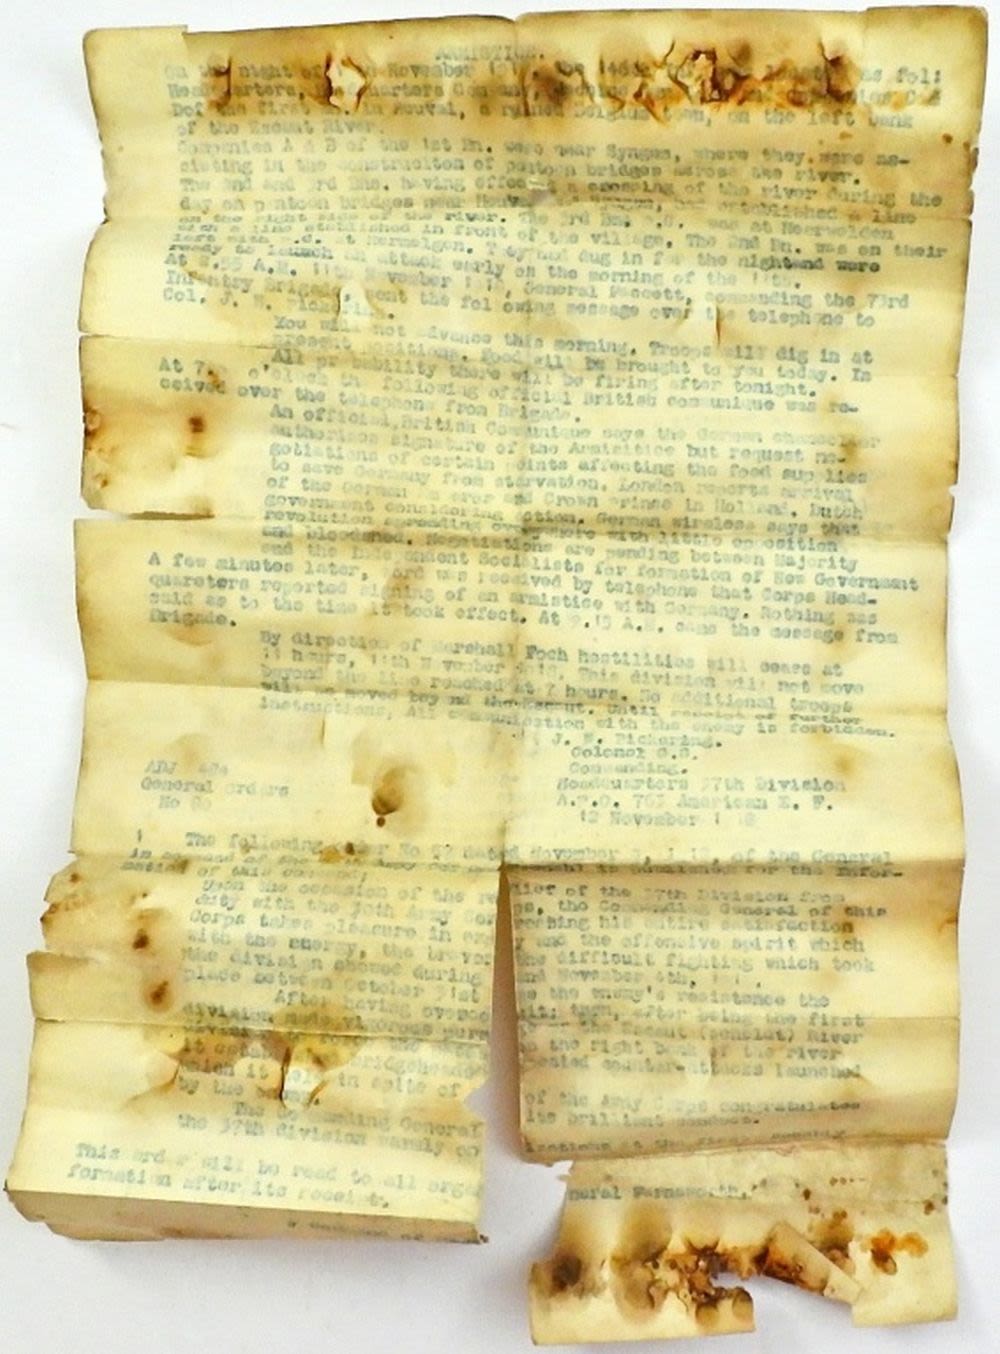 ARMISTICE.
On the night of November the 146th as fol:
Headquarters, Headquarters Company,
of the first Bn. in Heuval, a ruined Belgium town, on the left bank
of the Escaut River.
Companies A & B of the 1st Bn. were near Syngem, where they were as-
sisting in the construciton of pontoon bridges across the river.
The 2nd and 3rd Bns. having effected a crossing of the river during the
day on pontoon bridges near Heuval had established a line
on the right side of the river. The 3rd Bn. was at Meerwelden
with a line established in front of the village. The 2nd Bn. was on their
left with at Hermelgen. They had dug in for the nightand were
ready to launch an attack early on the morning of the 11th.
At A.M. 11th November General Fassett, commanding the 73rd
Infantry Brigade, sent the following message over the telephone to
Col. J. W. Pickering.
You will not advance this morning. Troops will dig in at
present positions. Food will be brought to you today. In
All probability there will be firing after tonight.
At 7. o'clock the following official British communique was re-
ceived over the telephone from Brigade.
An official, British Communique says the German chancellor
authorises signature of the Armisitice but request ne-
gotiations of certain points affecting the food supplies
to save Germany from starvation. London reports arrival
of the German Emperor and Crown Prince in Holland. Dutch
government considering action. German wireless says that
revolution spreading everywhere with little opposition
and bloodshed. Negotiations are pending between Majority
and the Independent Socialists for formation of New Government
A few minutes later, word was received by telephone that Corps Head-
quareters reported signing of an armistice with Germany. Nothing was
said as to the time it took effect. At 9.15 A.M. came the message from
Brigade.
By direction of Marshall Foch hostilities will cease at
11 hours, 11th November This division will not move
beyond the line reached at 7 hours. No additional troops
will be moved beyond the Escaut. Until receipt of further
instructions, All communication with the enemy is forbidden.
J. W. Pickering.
Colonel
Commanding.
ADJ
General Orders
No
Headquarters 37th Division
A.P.O. 763 American E. F.
12 November
The following order No dated November of the General
in command of the army corps is published for the infor-
mation of this command;
Upon the occasion of the relief of the 37th Division from
duty with the 30th Army Corps, the Commanding General of this
Corps takes pleasure in expressing his entire satisfaction
with the energy, the bravery and the offensive spirit which
the division showed during the difficult fighting which took
place between October 31st and November 4th,
After having overcome the enemy's resistance the
division made vigorous pursuit; then, after being the first
the Escaut (Scheldt) River
it bridgeheads on the right bank of the river
which it held in spite of repeated counter-attacks launched
by the enemy.
The Commanding General of the Army Corps congratulates
the 37th division warmly on its brilliant conduct.
This order will be read to all organizations at the first
formation after its receipt.
General Farnsworth.